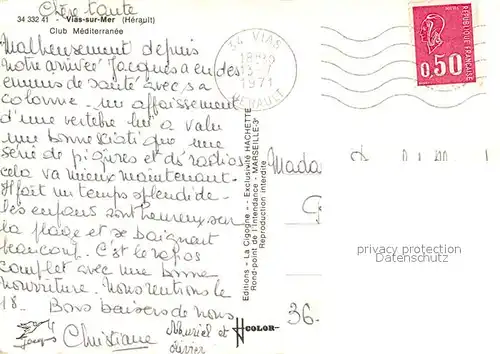 Chère tante
34 332 41 - Vias-sur-Mer (Hérault)
Club Méditerranée
Malheureusement depuis
notre arrivée Jacques a eu des
ennuis de santé avec sa
colonne - un affaissement
d'une vertèbre lui a valu
une bonne sciatique une
série de piqûres et des radios
cela va mieux maintenant.
Il fait un temps splendide.
les enfants sont heureux sur
la plage et se baignent
beaucoup. C'est le repos
complet avec une bonne
nourriture. Nous rentrons le
18. Bons baisers de nous
Jacques Christiane Muriel et
Olivier
Editions "La Cigogne" - Exclusivité HACHETTE
Rond-point de l'Intendance - MARSEILLE-3e
Reproduction interdite
COLOR
34 VIAS
18H
1971
HERAULT
REPUBLIQUE FRANÇAISE
0,50
Mada
36.
privacy protection
Datenschutz